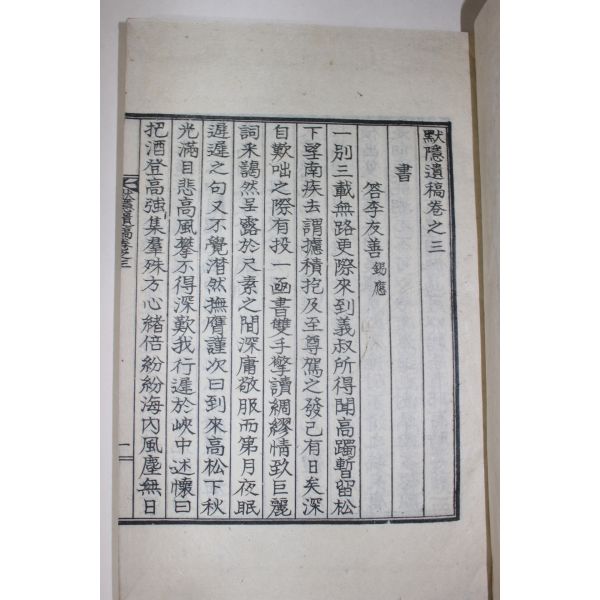 默隱遺稿卷之三
書
答李友善 錫應
一別三載無路更際來到義叔所得聞高躅暫留松
下望南疾去謂攄積抱及至尊駕之發已有日矣深
自歎咄之際有投一凾書雙手擎讀綢繆情致巨麗
詞釆藹然呈露於尺素之間深庸敬服而第月夜眠
遲遲之句又不覺潸然撫膺謹次曰到來高松下秋
光滿目悲高風攀不得深歎我行遲於峽中述懷曰
把酒登高強集羣殊方心緒倍紛紛海內風塵無日
默隱遺稿卷之三
一